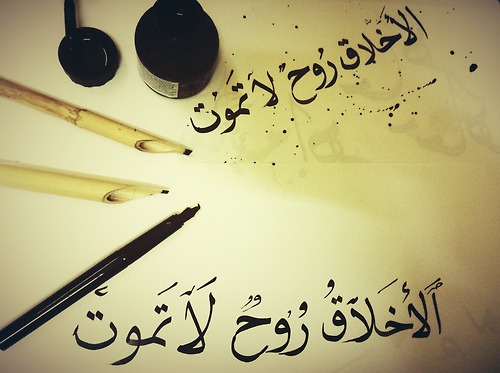 الأخلاق روح لا تموت
الأخلاق روح لا تموت